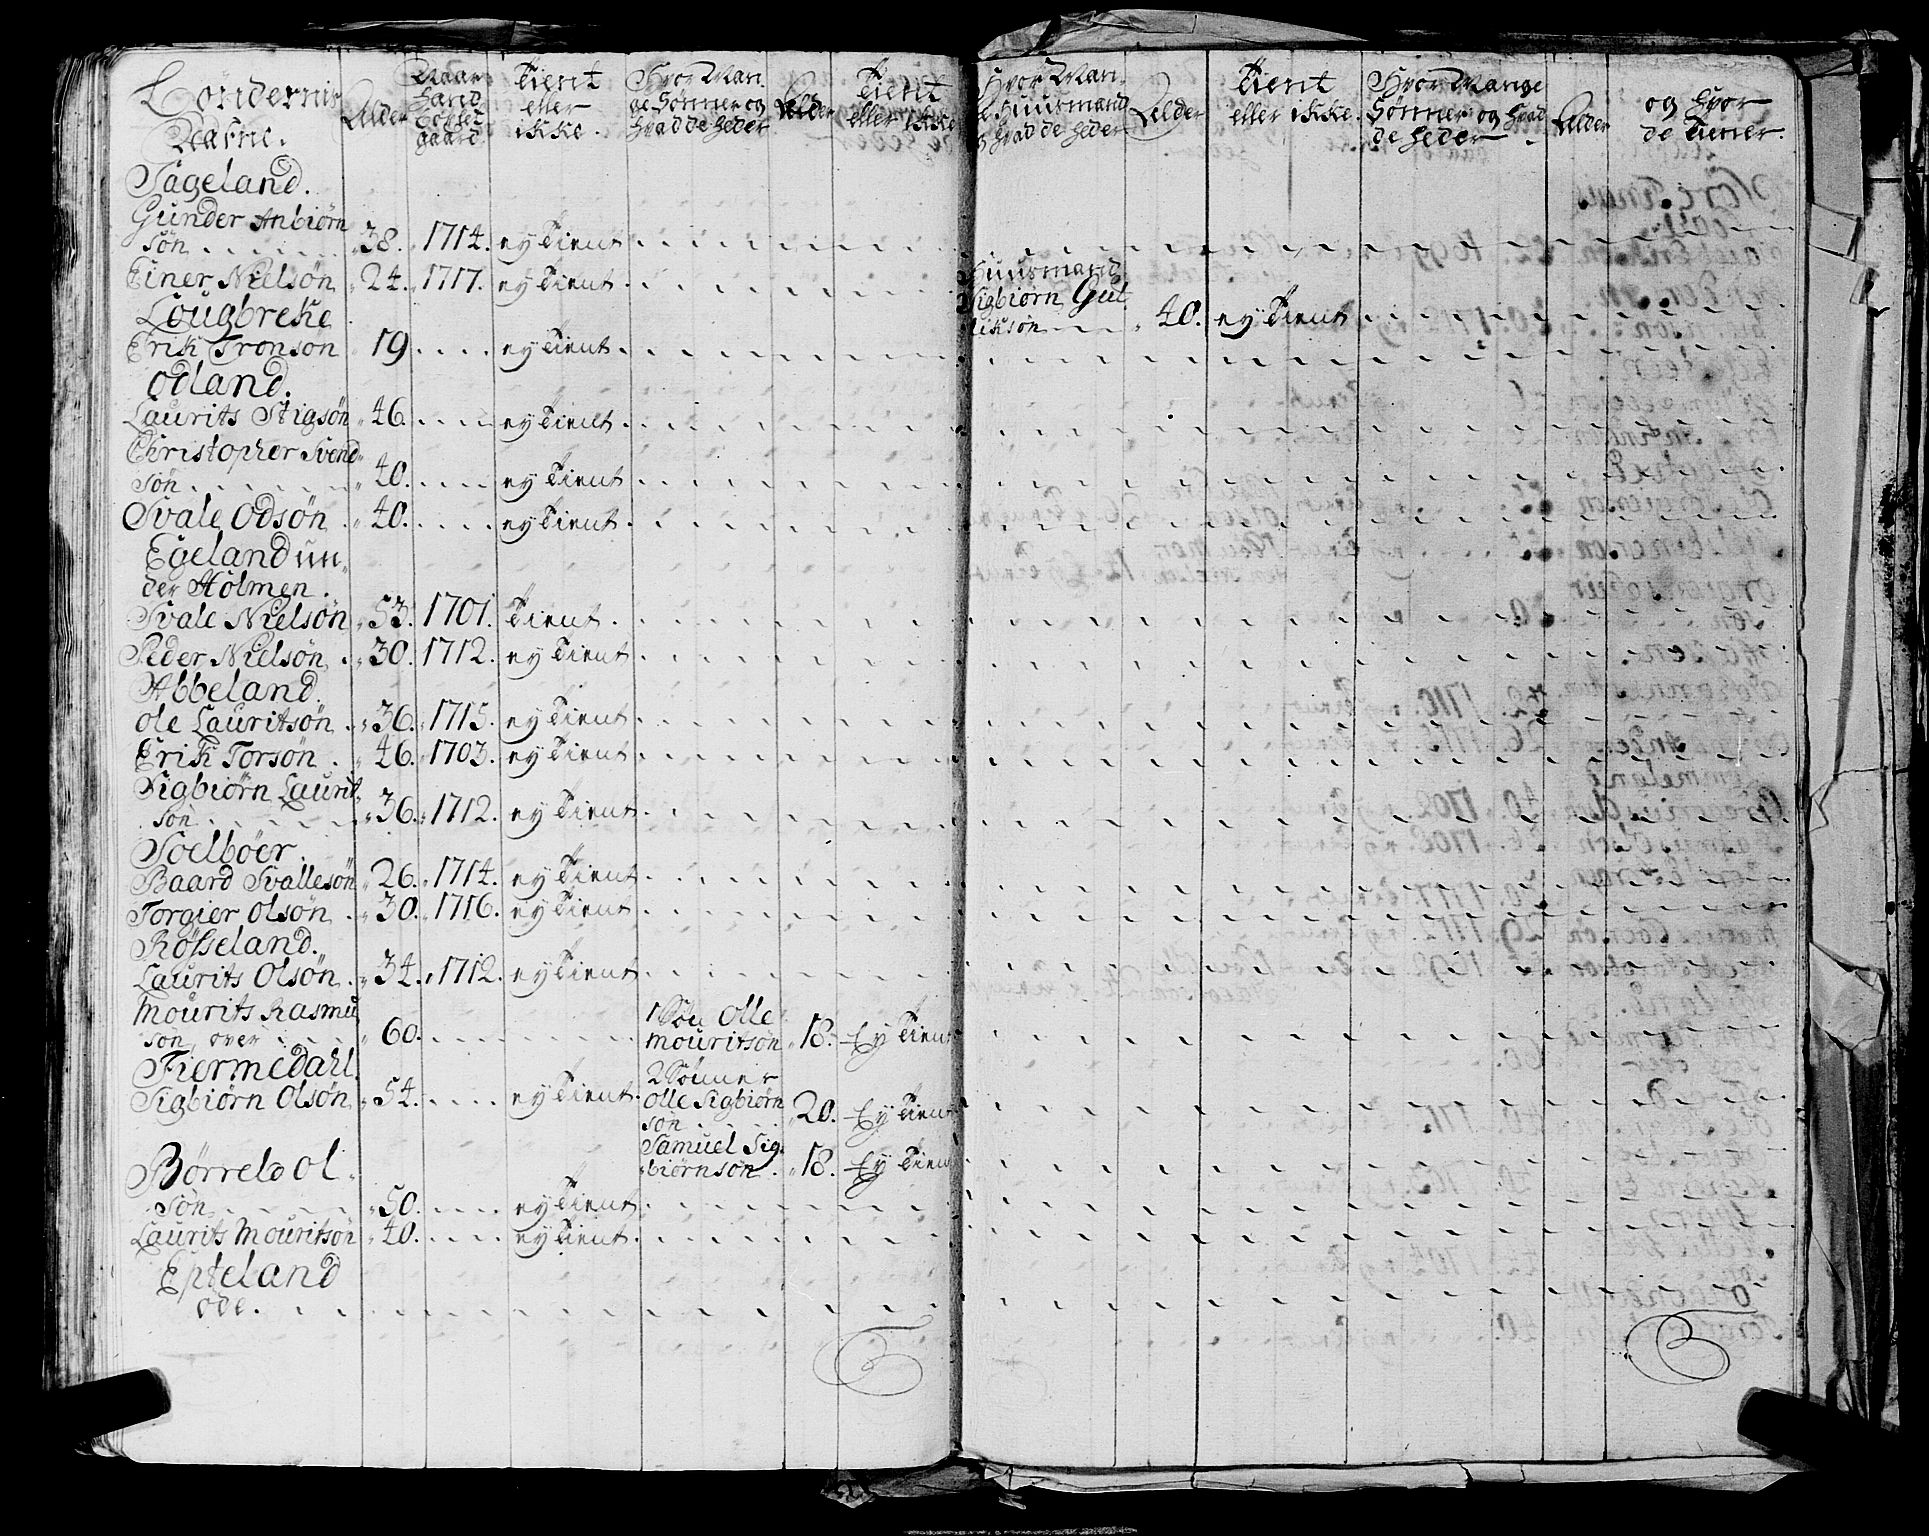 Böndernis Nafne. Alder Naar hand Böxlet gaard Tient eller ikke. Hvor Man ge Sønner og hvad de heder Alder Tient eller ikke
Hvor Man ge Huusmand og hvad de heder Alder Tient eller ikke. Hvor Mange Sønner og hvad de heder Alder og hvor de tiener.
Tageland.
Gunder Anbiørn
søn 38. 1714. ey Tient
Einer Nielsøn 24. 1717. ey Tient
Huusmand
Sigbiørn Gul
liksøn 40. ey Tient
Lougbreke
Erik Tronson 19 ey Tient
Odland.
Laurits Stigsøn 46. ey Tient
Christopher Svend
søn 40. ey Tient
Svale Odsøn 40. ey Tient
Egeland un
der Holmen.
Svale Nielsøn 53. 1701. Tient
Peder Nielsøn 30. 1712. ey Tient
Abbeland.
Ole Lauritsøn 36. 1715. ey Tient
Erik Torsøn 46. 1703. ey Tient
Sigbiørn Laurit
søn 36. 1712. ey Tient
Soelbøer.
Baard Svallesøn 26. 1714. ey Tient
Torgier Olsøn 30. 1716. ey Tient
Røsseland.
Laurits Olsøn 34. 1712. ey Tient
Mourits Rasmu
søn, over 60. 1 Søn Olle
Mouritsøn 18. Ey Tient
Fiermedahl.
Sigbiørn Olsøn 54. ey Tient. 2 Sønner
Olle Sigbiørn
søn 20. Ey Tient
Samuel Sig
biørnsøn 18. Ey Tient
Børreld Ol
søn 50. ey Tient
Laurits Mouritsøn 40. ey Tient
Epteland
øde.